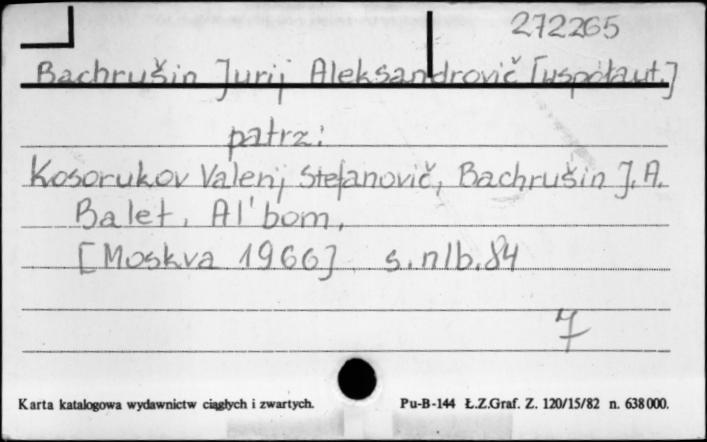 272265
Bachrušin Jurij Aleksandrovič [współaut.]
patrz:
Kosorukov Valerij Stefanovič, Bachrušin J. A.
Balet. Al'bom.
[Moskva 1966] s. nlb. 84
7
Karta katalogowa wydawnictw ciągłych i zwartych. Pu-B-144 Ł.Z.Graf. Z. 120/15/82 n. 638000.